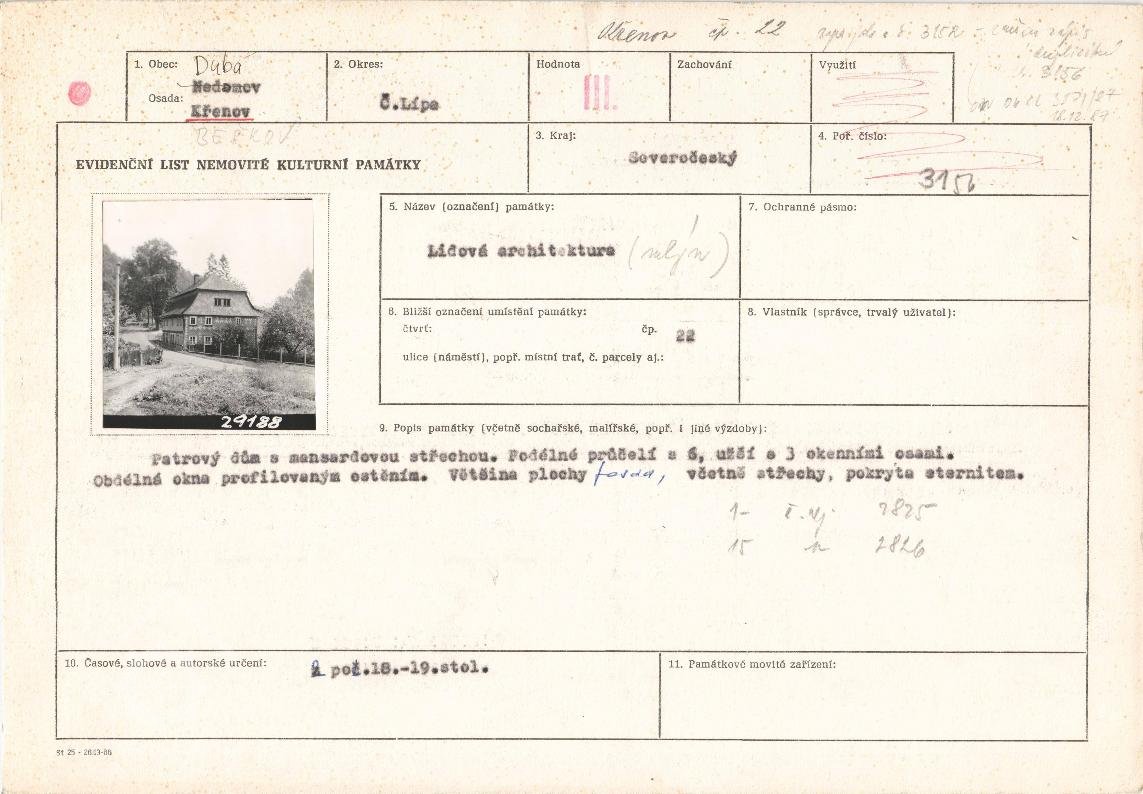 Křenov čp. 22
1. Obec: Dubá
Nedamov
Osada:
Křenov
2. Okres:
Č.Lípa
Hodnota
III.
Zachování
Využití
3156
3. Kraj:
Severočeský
4. Poř. číslo:
3156
EVIDENČNÍ LIST NEMOVITÉ KULTURNÍ PAMÁTKY
5. Název (označení) památky:
Lidová architektura (mlýn)
7. Ochranné pásmo:
6. Bližší označení umístění památky:
čtvrť: čp. 22
ulice (náměstí), popř. místní trať, č. parcely aj.:
8. Vlastník (správce, trvalý uživatel):
29188
9. Popis památky (včetně sochařské, malířské, popř. i jiné výzdoby):
Patrový dům s mansardovou střechou. Podélné průčelí s 6, užší s 3 okenními osami.
Obdélná okna profilovaným ostěním. Většina plochy fasád, včetně střechy, pokryta eternitem.
1- 2825
15 2826
10. Časové, slohové a autorské určení:
pol.18.-19.stol.
11. Památkové movité zařízení:
St 25 - 2633-66